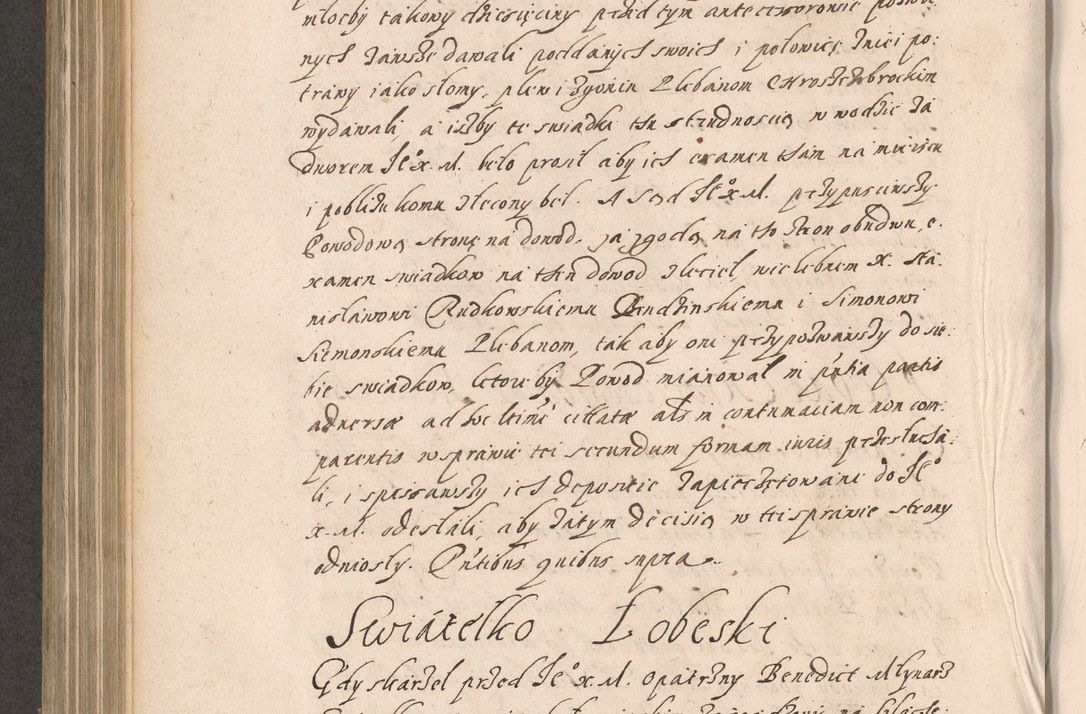 młocby takowy dziesięciny przed tym antecessorowie pozwa
nych zawsze dawali poddanych swoich i połowicę żnici po:
trawy iako słomy, plew i zgonin Plebanom Chroszczbrockim
wydawali, a iżby te swiadki tßu s trudnoscią w wodzie za
dworem Je° x. M. beło prosił aby ich examen tham na mieiscu
i pobliżu komu zlecony beł. A Sąd Je° x. M. przypusciwszy
Powodową stronę na dowod, za zgodą na tho stron obudwu, e.
xamen swiadkow na then dowod zlecieł, wielebnem X. Sta.
nisławowi Rudkowskiemu Rudzinskiemu i Simonowi
Siemonskiemu Plebanom, tak aby oni przypozwawszy do sie.
bie swiadkow, letore by Powod mianował in pñtia partis
adversæ ad hoc ltime citatæ als in contumaciam non com:
parentis w sprawie tei secundum formam iuris przesłucha:
li, i spisawszy ich depositie zapieczętowane do Je°
x. M. odesłali, aby zatym decisią w tei sprawie strony
odniosły. Pñtibus quibus supra.
Swiátełko Łobeski
Gdy skarżeł przed Je° x. M. opatrzny Benedict Młynarz